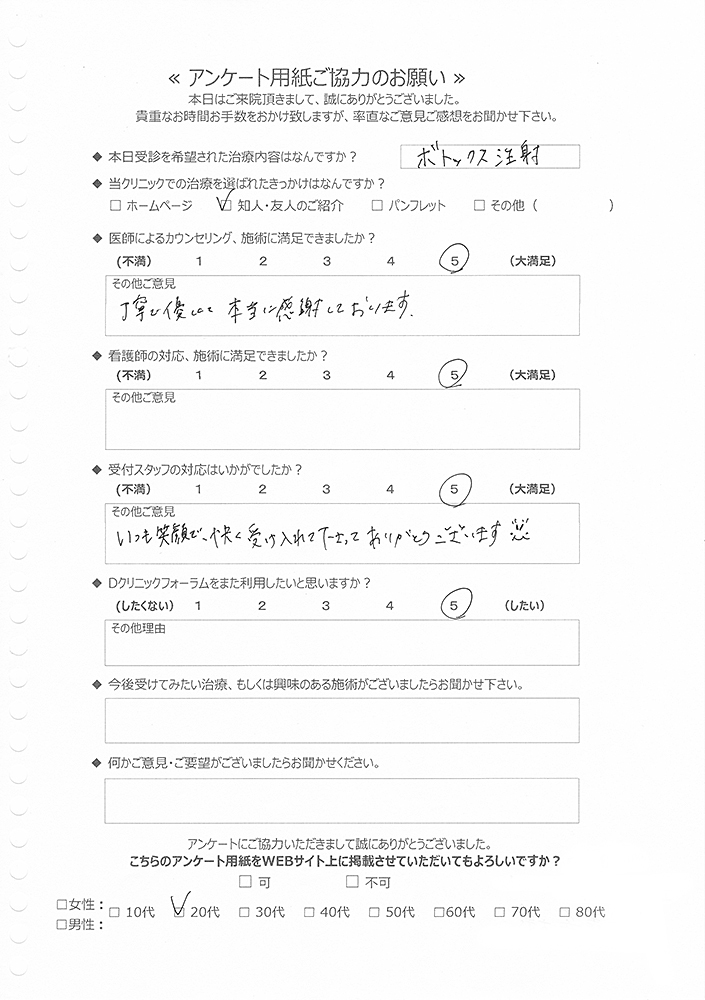 ≪ アンケート用紙ご協力のお願い ≫
本日はご来院頂きまして、誠にありがとうございました。
貴重なお時間お手数をおかけ致しますが、率直なご意見ご感想をお聞かせ下さい。
◆ 本日受診を希望された治療内容はなんですか？ ボトックス注射
◆ 当クリニックでの治療を選ばれたきっかけはなんですか？
□ ホームページ ☑ 知人・友人のご紹介 □ パンフレット □ その他（ ）
◆ 医師によるカウンセリング、施術に満足できましたか？
(不満) 1 2 3 4 5 (大満足)
その他ご意見
丁寧で優しくて 本当に感謝しております.
◆ 看護師の対応、施術に満足できましたか？
(不満) 1 2 3 4 5 (大満足)
その他ご意見
◆ 受付スタッフの対応はいかがでしたか？
(不満) 1 2 3 4 5 (大満足)
その他ご意見
いつも笑顔で、快く受け入れて下さって ありがとうございます
◆ Dクリニックフォーラムをまた利用したいと思いますか？
(したくない) 1 2 3 4 5 (したい)
その他理由
◆ 今後受けてみたい治療、もしくは興味のある施術がございましたらお聞かせ下さい。
◆ 何かご意見・ご要望がございましたらお聞かせください。
アンケートにご協力いただきまして誠にありがとうございました。
こちらのアンケート用紙をWEBサイト上に掲載させていただいてもよろしいですか？
□ 可 □ 不可
□女性：
□男性：
□ 10代 ☑ 20代 □ 30代 □ 40代 □ 50代 □60代 □ 70代 □ 80代